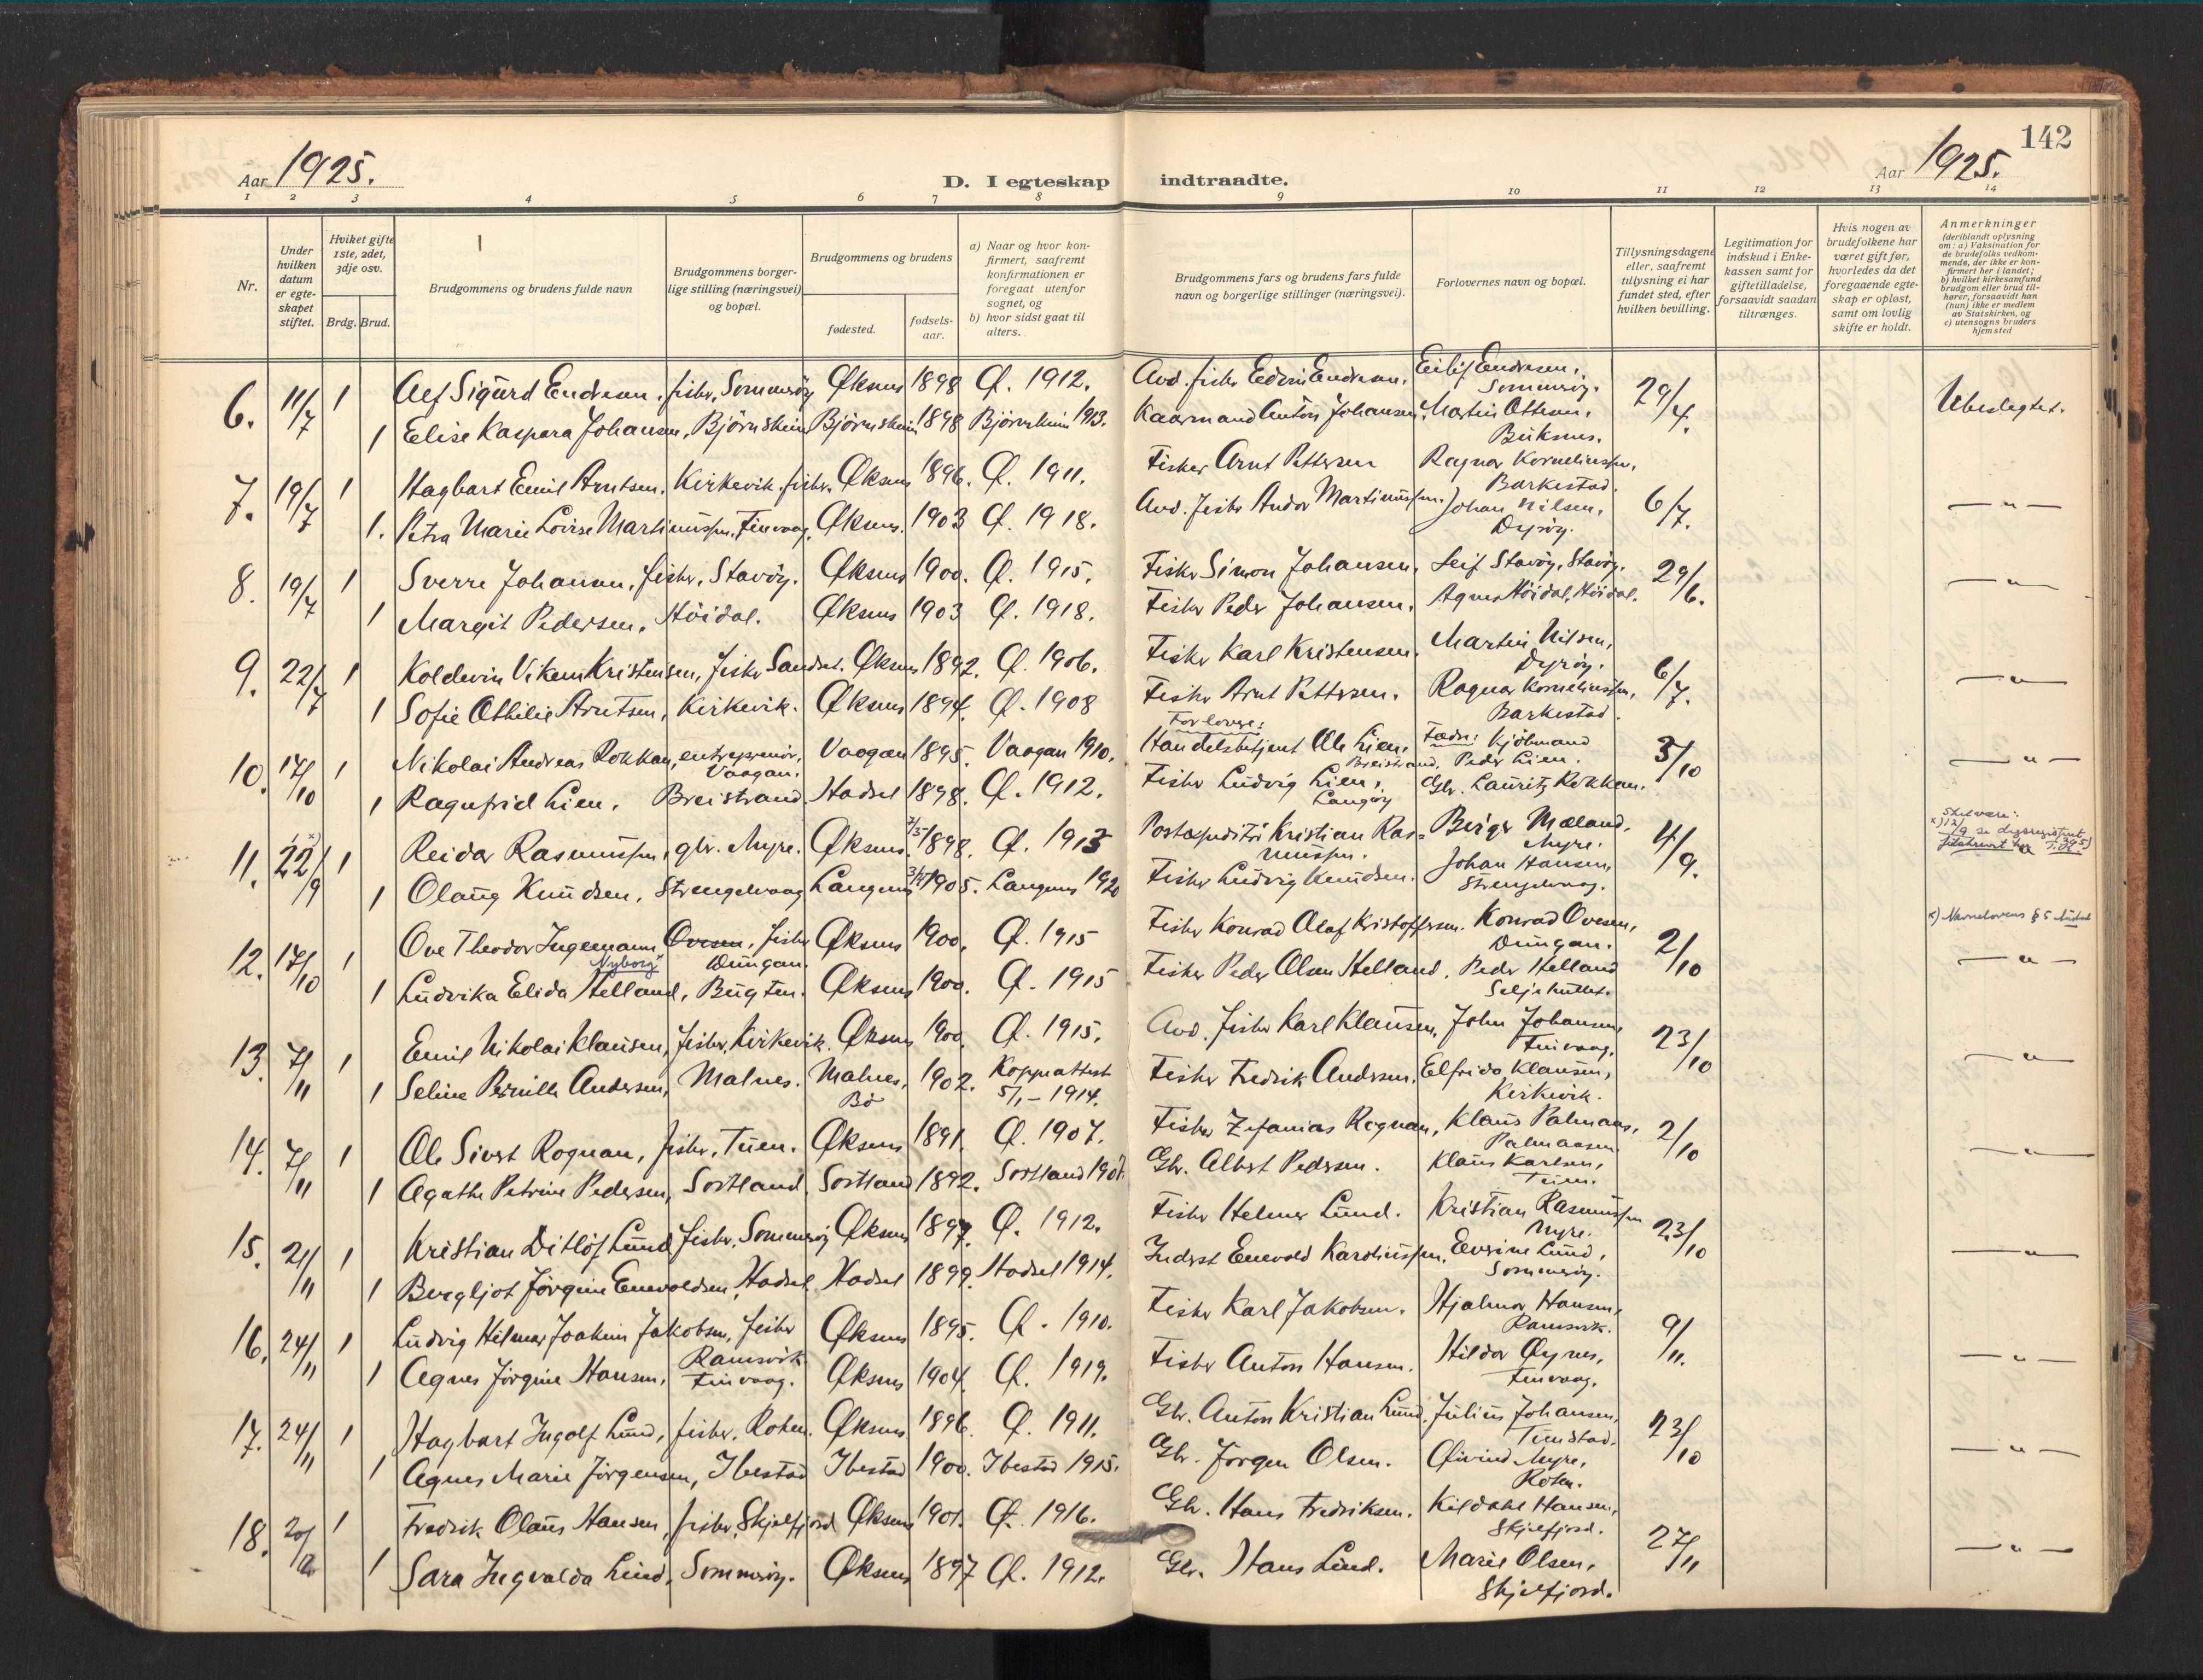 142
Aar 1925.
D. I egteskap indtraadte.
Aar 1925.
1 2 3 4 5 6 7 8 9 10 11 12 13 14
Nr.
Under hvilken datum er egteskapet stiftet.
Hviket gifte 1ste, 2det, 3dje osv.
Brdg. Brud.
Brudgommens og brudens fulde navn
Brudgommens borgerlige stilling (næringsvei) og bopæl.
Brudgommens og brudens
fødested.
fødselsaar.
a) Naar og hvor konfirmert, saafremt konfirmationen er foregaat utenfor sognet, og
b) hvor sidst gaat til alters.
Brudgommens fars og brudens fars fulde navn og borgerlige stillinger (næringsvei).
Forlovernes navn og bopæl.
Tillysningsdagene eller, saafremt tillysning ei har fundet sted, efter hvilken bevilling.
Legitimation for indskud i Enkekassen samt for giftetilladelse, forsaavidt saadan tiltrænges.
Hvis nogen av brudefolkene har været gift før, hvorledes da det foregaaende egteskap er opløst, samt om lovlig skifte er holdt.
Anmerkninger (deriblandt oplysning om: a) Vaksination for de brudefolks vedkommende, der ikke er konfirmert her i landet; b) hvilket kirkesamfund brudgom eller brud tilhører, forsaavidt han (hun) ikke er medlem av Statskirken, og c) utensogns bruders hjemsted
6. 11/7 1 Alf Sigurd Endresen, fisker, Sommerøy Øksnes 1898 Ø. 1912. Avd. fisker Edvin Endresen. Eilif Endresen, Sommerøy. 29/4. Ubeslegtet.
1 Elise Kaspara Johansen, Bjørnskinn Bjørnskinn 1898 Bjørnskinn 1913. Kaarmand Anton Johansen. Martin Ottesen, Buksnes.
7. 19/7 1 Hagbart Emil Arntsen, Kirkevik. fisker. Øksnes 1896. Ø. 1911. Fisker Arnt Pettersen Ragnar Korneliussen, Barkestad. 6/7. — " —
1. Petra Marie Lovise Martinussen, Finvaag, Øksnes. 1903 Ø. 1918. Avd. fisker Andor Martinussen. Johan Nilsen, Dyrøy.
8. 19/7 1 Sverre Johansen, fisker, Stavøy. Øksnes 1900. Ø. 1915. Fisker Simon Johansen. Leif Stavøy, Stavøy. 29/6. — " —
1 Margit Pedersen, Høidal. Øksnes 1903 Ø. 1918. Fisker Peder Johansen. Agnes Høidal, Høidal.
9. 22/7 1 Koldevin Vikem Kristensen, fisker Sandset. Øksnes 1892. Ø. 1906. Fisker Karl Kristensen. Martin Nilsen, Dyrøy. 6/7. — " —
1 Sofie Othilie Arntsen, Kirkevik. Øksnes 1894. Ø. 1908 Fisker Arnt Pettersen. Ragnar Korneliussen, Barkestad.
10. 17/10 1 Nikolai Andreas Rokkan, entreprenør, Vaagan. Vaagan 1895. Vaagan 1910. Forlovere: Handelsbetjent Ole Lien, Breistrand. Fædre: Kjøbmand Peder Lien. 3/10 — " —
1 Ragnfrid Lien, Breistrand. Hadsel 1898. Ø. 1912. Fisker Ludvig Lien, Langøy Gbr. Lauritz Rokkan.
11. 22/9 1 Reidar Rasmussen, gbr. Myre. Øksnes. 7/5 1898. Ø. 1913 Postexpeditør Kristian Rasmussen. Birger Mæland. Myre. 4/9. Skal være: x) 12/9 se dagsregistret — " —
1 Olaug Knudsen, Strengelvaag Langenes 1905. Langenes 1920 Fisker Ludvig Knudsen. Johan Hansen, Strengelvaag.
12. 17/10 1 Ove Theodor Ingemann Ovesen, Nyborg fisker Dungan. Øksnes 1900. Ø. 1915 Fisker Konrad Olaf Kristoffersen. Konrad Ovesen, Dungan. 2/10 x) Navnelovens § 5 — " —
1 Ludvika Elida Helland, Bugten. Øksnes 1900. Ø. 1915 Fisker Peder Olsen Helland. Peder Helland
13. 7/11 1 Emil Nikolai Klausen, fisker, Kirkevik. Øksnes 1900. Ø. 1915. Avd. fisker Karl Klausen. John Johansen, Finvaag. 23/10 — " —
1 Seline Pernille Andersen, Malnes. Malnes, Bø 1902. Koppeattest 5/1 – 1914. Fisker Fredrik Andersen. Elfrida Klausen, Kirkevik.
14. 7/11 1 Ole Sivert Rognan, fisker, Tuen. Øksnes 1891. Ø. 1907. Fisker Zefanias Rognan, Klaus Palmaas, Palmaasen 2/10 — " —
1 Agathe Petrine Pedersen, Sortland. Sortland 1892. Sortland 1907. Gbr. Albert Pedersen. Klaus Karlsen, Tuen.
15. 21/11 1 Kristian Ditløf Lund fisker, Sommerøy Øksnes 1897. Ø. 1912. Fisker Helmer Lund. Kristian Rasmussen Myre. 23/10 — " —
1 Bergljot Jørgine Enevoldsen, Hadsel. Hadsel 1899. Hadsel 1914. Inderst Enevold Karoliussen. Evrine Lund, Sommerøy.
16. 24/11 1 Ludvig Hilmar Joakim Jakobsen, fisker Ramsvik Øksnes 1895. Ø. 1910. Fisker Karl Jakobsen. Hjalmar Hansen, Ramsvik. 9/11. — " —
1 Agnes Jørgine Hansen, Finvaag. Øksnes 1904. Ø. 1919. Fisker Anton Hansen. Hilda Øynes, Finvaag.
17. 24/11 1 Hagbart Ingolf Lund, fisker. Roten. Øksnes 1896. Ø. 1911. Gbr. Anton Kristian Lund. Julius Johansen, Tunstad. 23/10 — " —
1 Agnes Marie Jørgensen, Ibestad Ibestad 1900. Ibestad 1915. Gbr. Jørgen Olsen. Øivind Myre, Roten.
18. 20/12 1 Fredrik Olaus Hansen, fisker, Skjelfjord Øksnes 1901. Ø. 1916. Gbr. Hans Fredriksen. Kildahl Hansen, Skjelfjord. 27/11 — " —
1 Sara Ingvalda Lind, Sommerøy. Øksnes 1897 Ø. 1912. Gbr. Hans Lind. Marie Olsen, Skjelfjord.